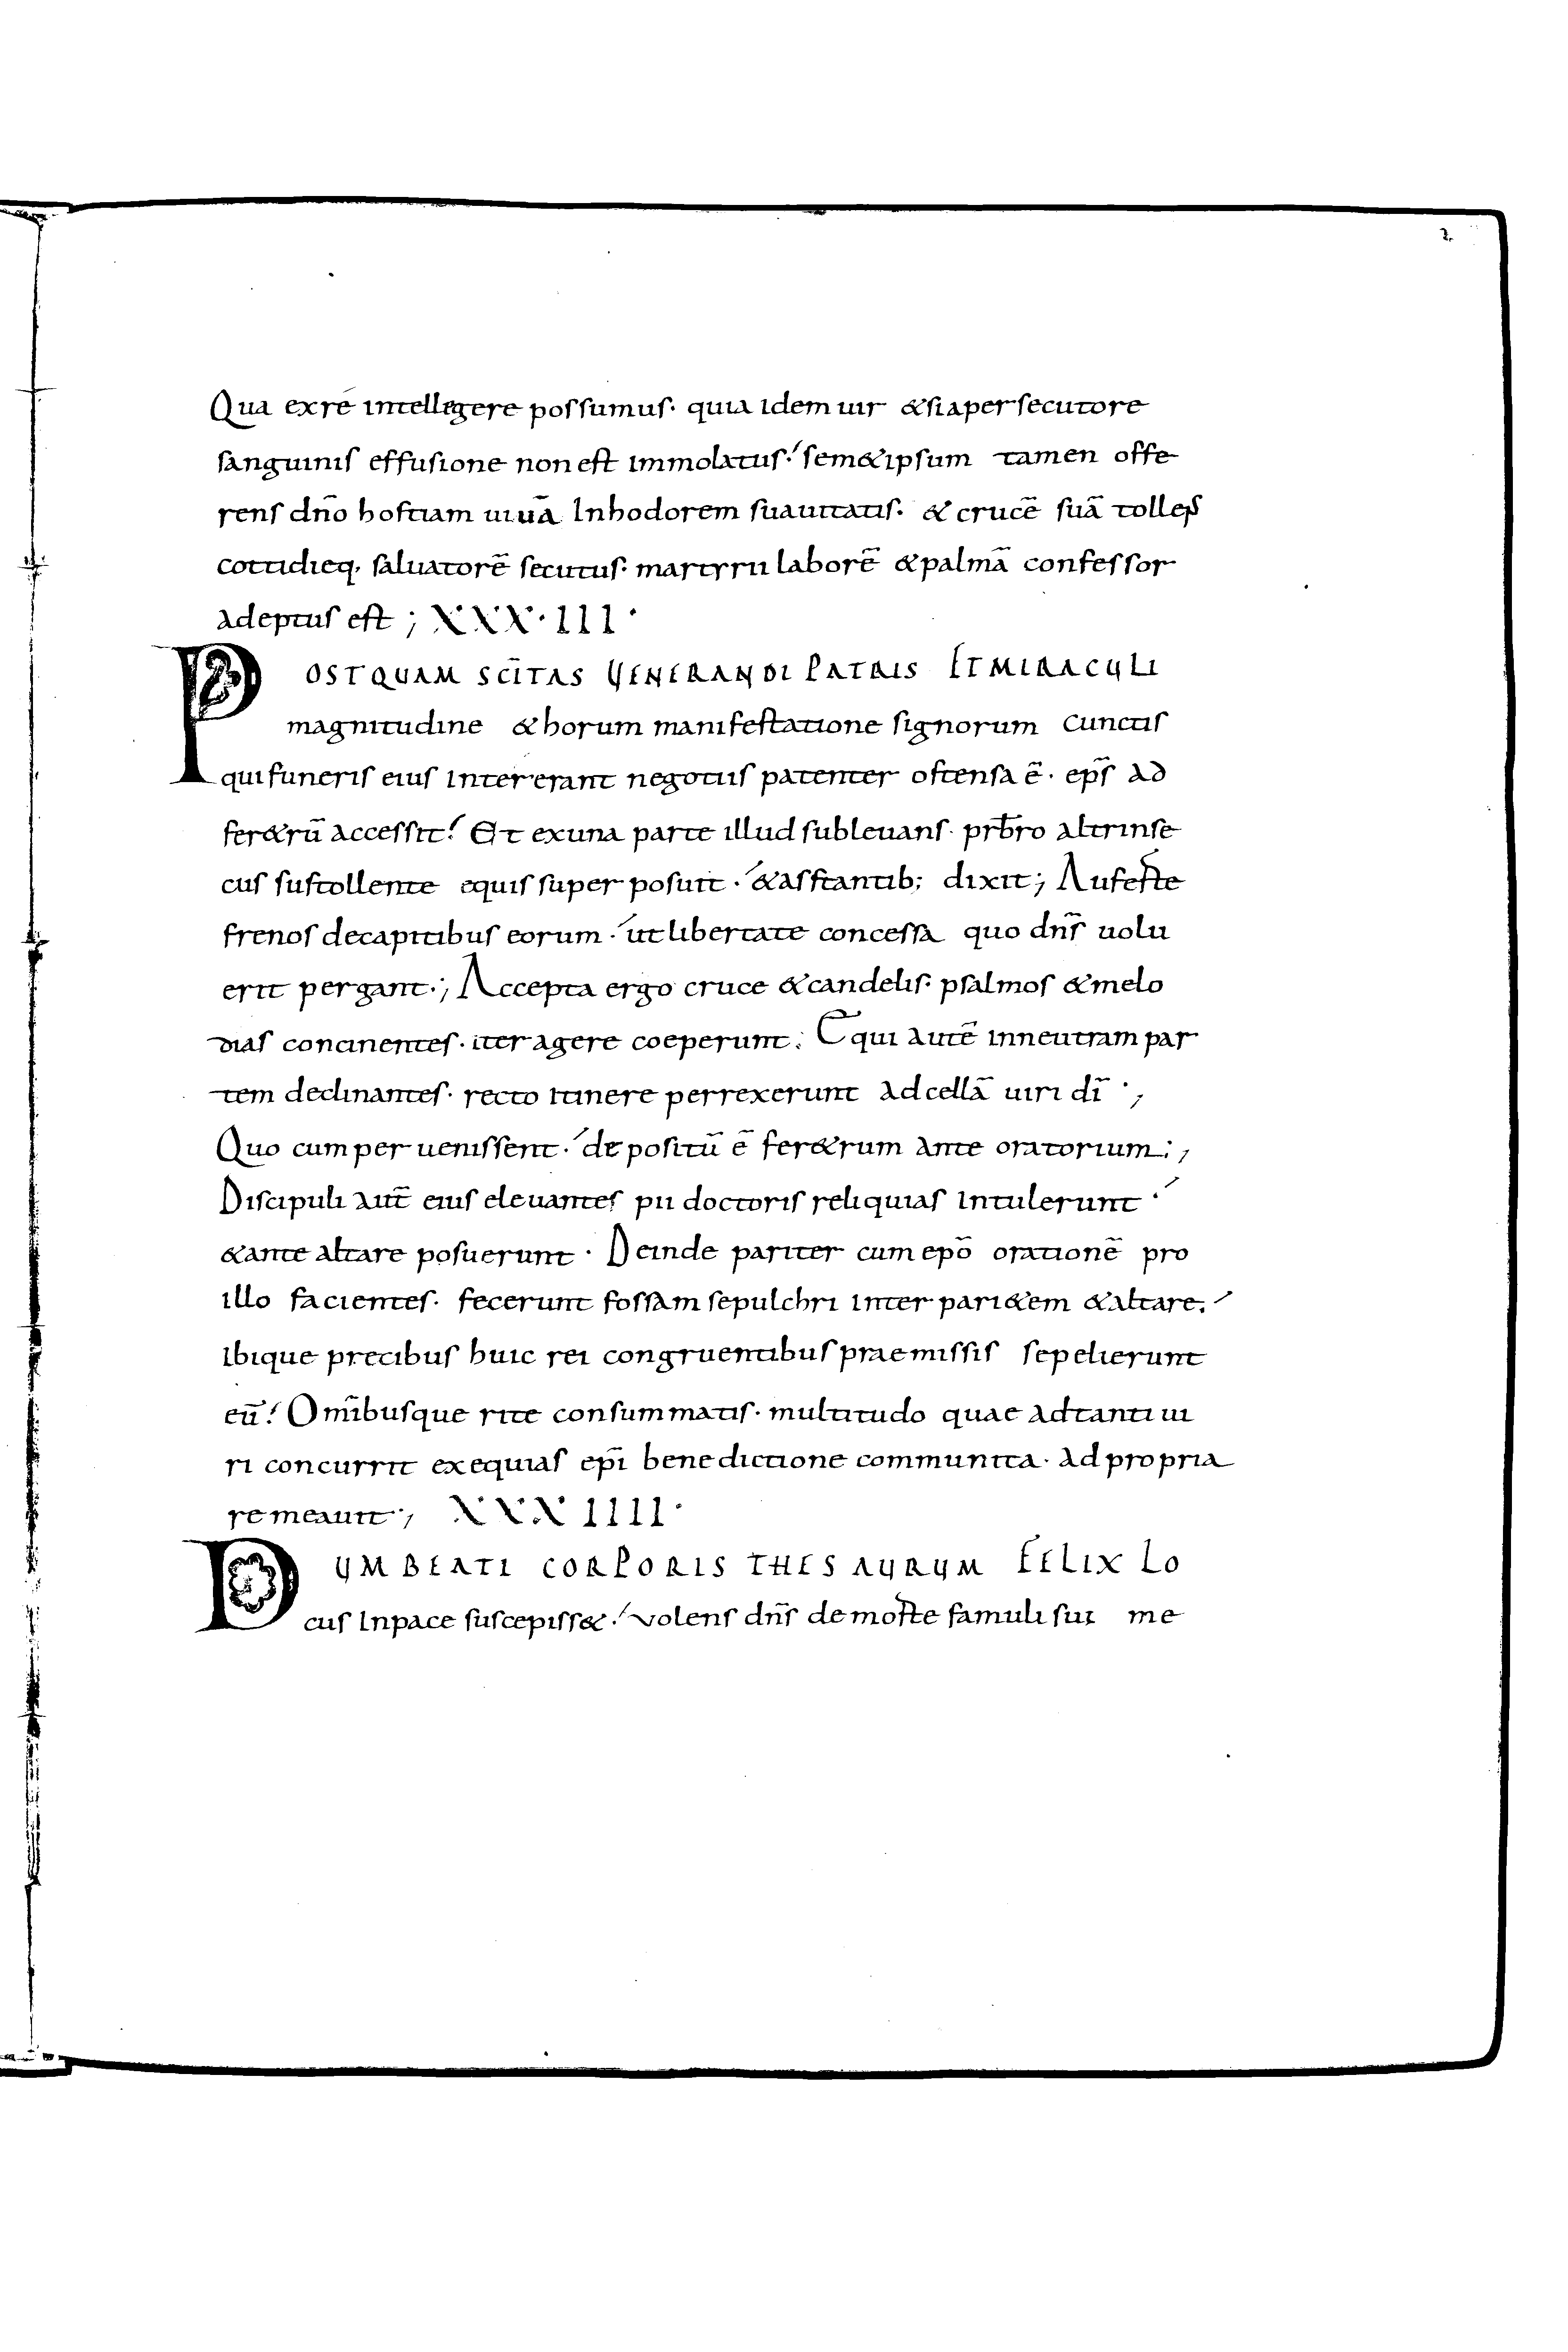 2
Qua ex ré intellegere possumus· quia idem uir &si a persecutore
sanguinis effusione non est immolatus·́ sem&ipsum tamen offe
rens dn̄o hostiam uiuā Inhodorem suauitatis· & crucē suā tollens
cottidieq, saluatorē secutus· martyrii laborē & palmā confessor
adeptus est ; XXX·III·
POSTQUAM SCĪTAS VENERANDI PATRIS ET MIRACULI
magnitudine & horum manifestatione signorum cunctis
qui funeris eius Intererant negotiis patenter ostensa ē· ep̄s ad
fer&rū accessit! Et ex una parte illud subleuans· prb̄ro altrinse
cus sustollente equis superposuit ·́ &asstantib; dixit; Auferte
frenos de capitibus eorum ·́ ut libertate concessa quo dn̄s uolu
erit pergant·; Accepta ergo cruce &candelis· psalmos &melo
dias concinentes· iter agere coeperunt: Equi autē in neutram par
tem declinantes· recto itinere perrexerunt ad cellā uiri dī ·;
Quo cum peruenissent·́ depositū ē fer&rum ante oratorium:;
Discipuli aut̄ eius eleuantes pii doctoris reliquias Intulerunt ·́
&ante altare posuerunt · Deinde pariter cum ep̄o orationē pro
illo facientes· fecerunt fossam sepulchri Inter pari&em &altare:́
ibique precibus huic rei congruentibus praemissis sepelierunt
eū! Om̄ibusque rite consummatis· multitudo quae ad tanti ui
ri concurrit exequias ep̄i benedictione communita· ad propria
remeauit·; XXXIIII·
DUM BEATI CORPORIS THESAURUM FELIX LO
cus In pace suscepiss& ·́ volens dn̄s de morte famuli sui me